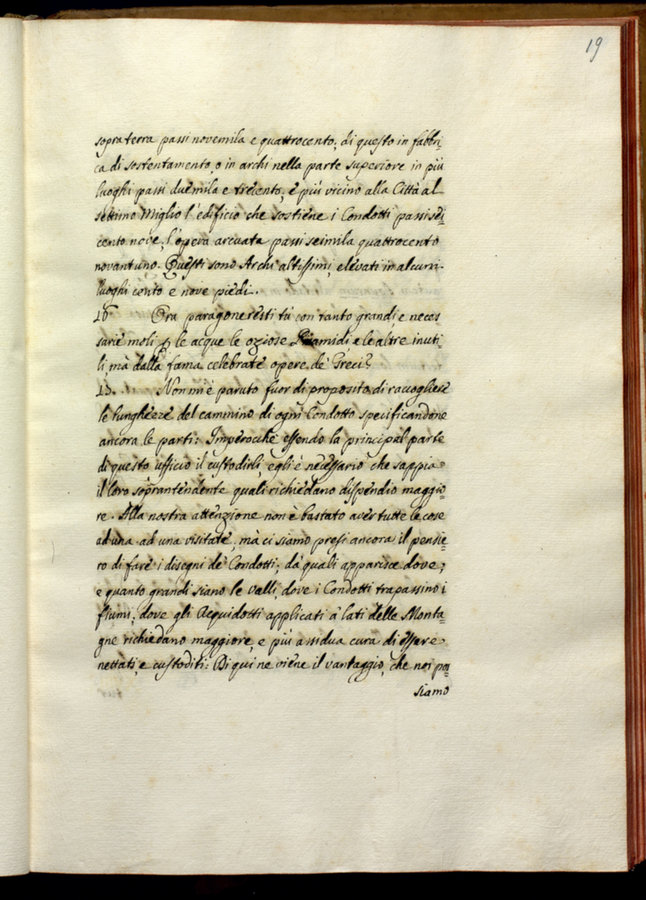 19
sopra terra passi novemila e quattrocento; di questo in fabbri
ca di sostentamento, o in archi nella parte superiore in più
luoghi passi duemila e trecento, e più vicino alla Città al
settimo Miglio l'edificio che sostiene i Condotti passi sei
cento nove, l'opera arcuata passi seimila quattrocento
novantuno. Questi sono Archi altissimi, elevati in alcuni
luoghi cento e nove piedi.
16 Ora paragoneresti tu con tanto grandi, e neces
sarie moli le acque le oziose Piramidi e le altre inuti
li, mà dalla fama celebrate opere de' Greci?
13. Non mi è paruto fuor di proposito di raccogliere
le lunghezze del cammino di ogni Condotto specificandone
ancora le parti: Imperocchè essendo la principal parte
di questo ufficio il custodirli, egli è necessario che sappia
il loro soprantendente quali richiedano dispendio maggio
re. Alla nostra attenzione non è bastato aver tutte le cose
ad una ad una visitate, mà ci siamo presi ancora il pensie
ro di fare i disegni de' Condotti; dà quali apparisce dove,
e quanto grandi siano le valli, dove i Condotti trapassino i
fiumi; dove gli Acquidotti applicati à lati delle Monta=
gne richiedano maggiore, e più assidua cura di essere
nettati, e custoditi: Di qui ne viene il vantaggio, che noi pos
siamo